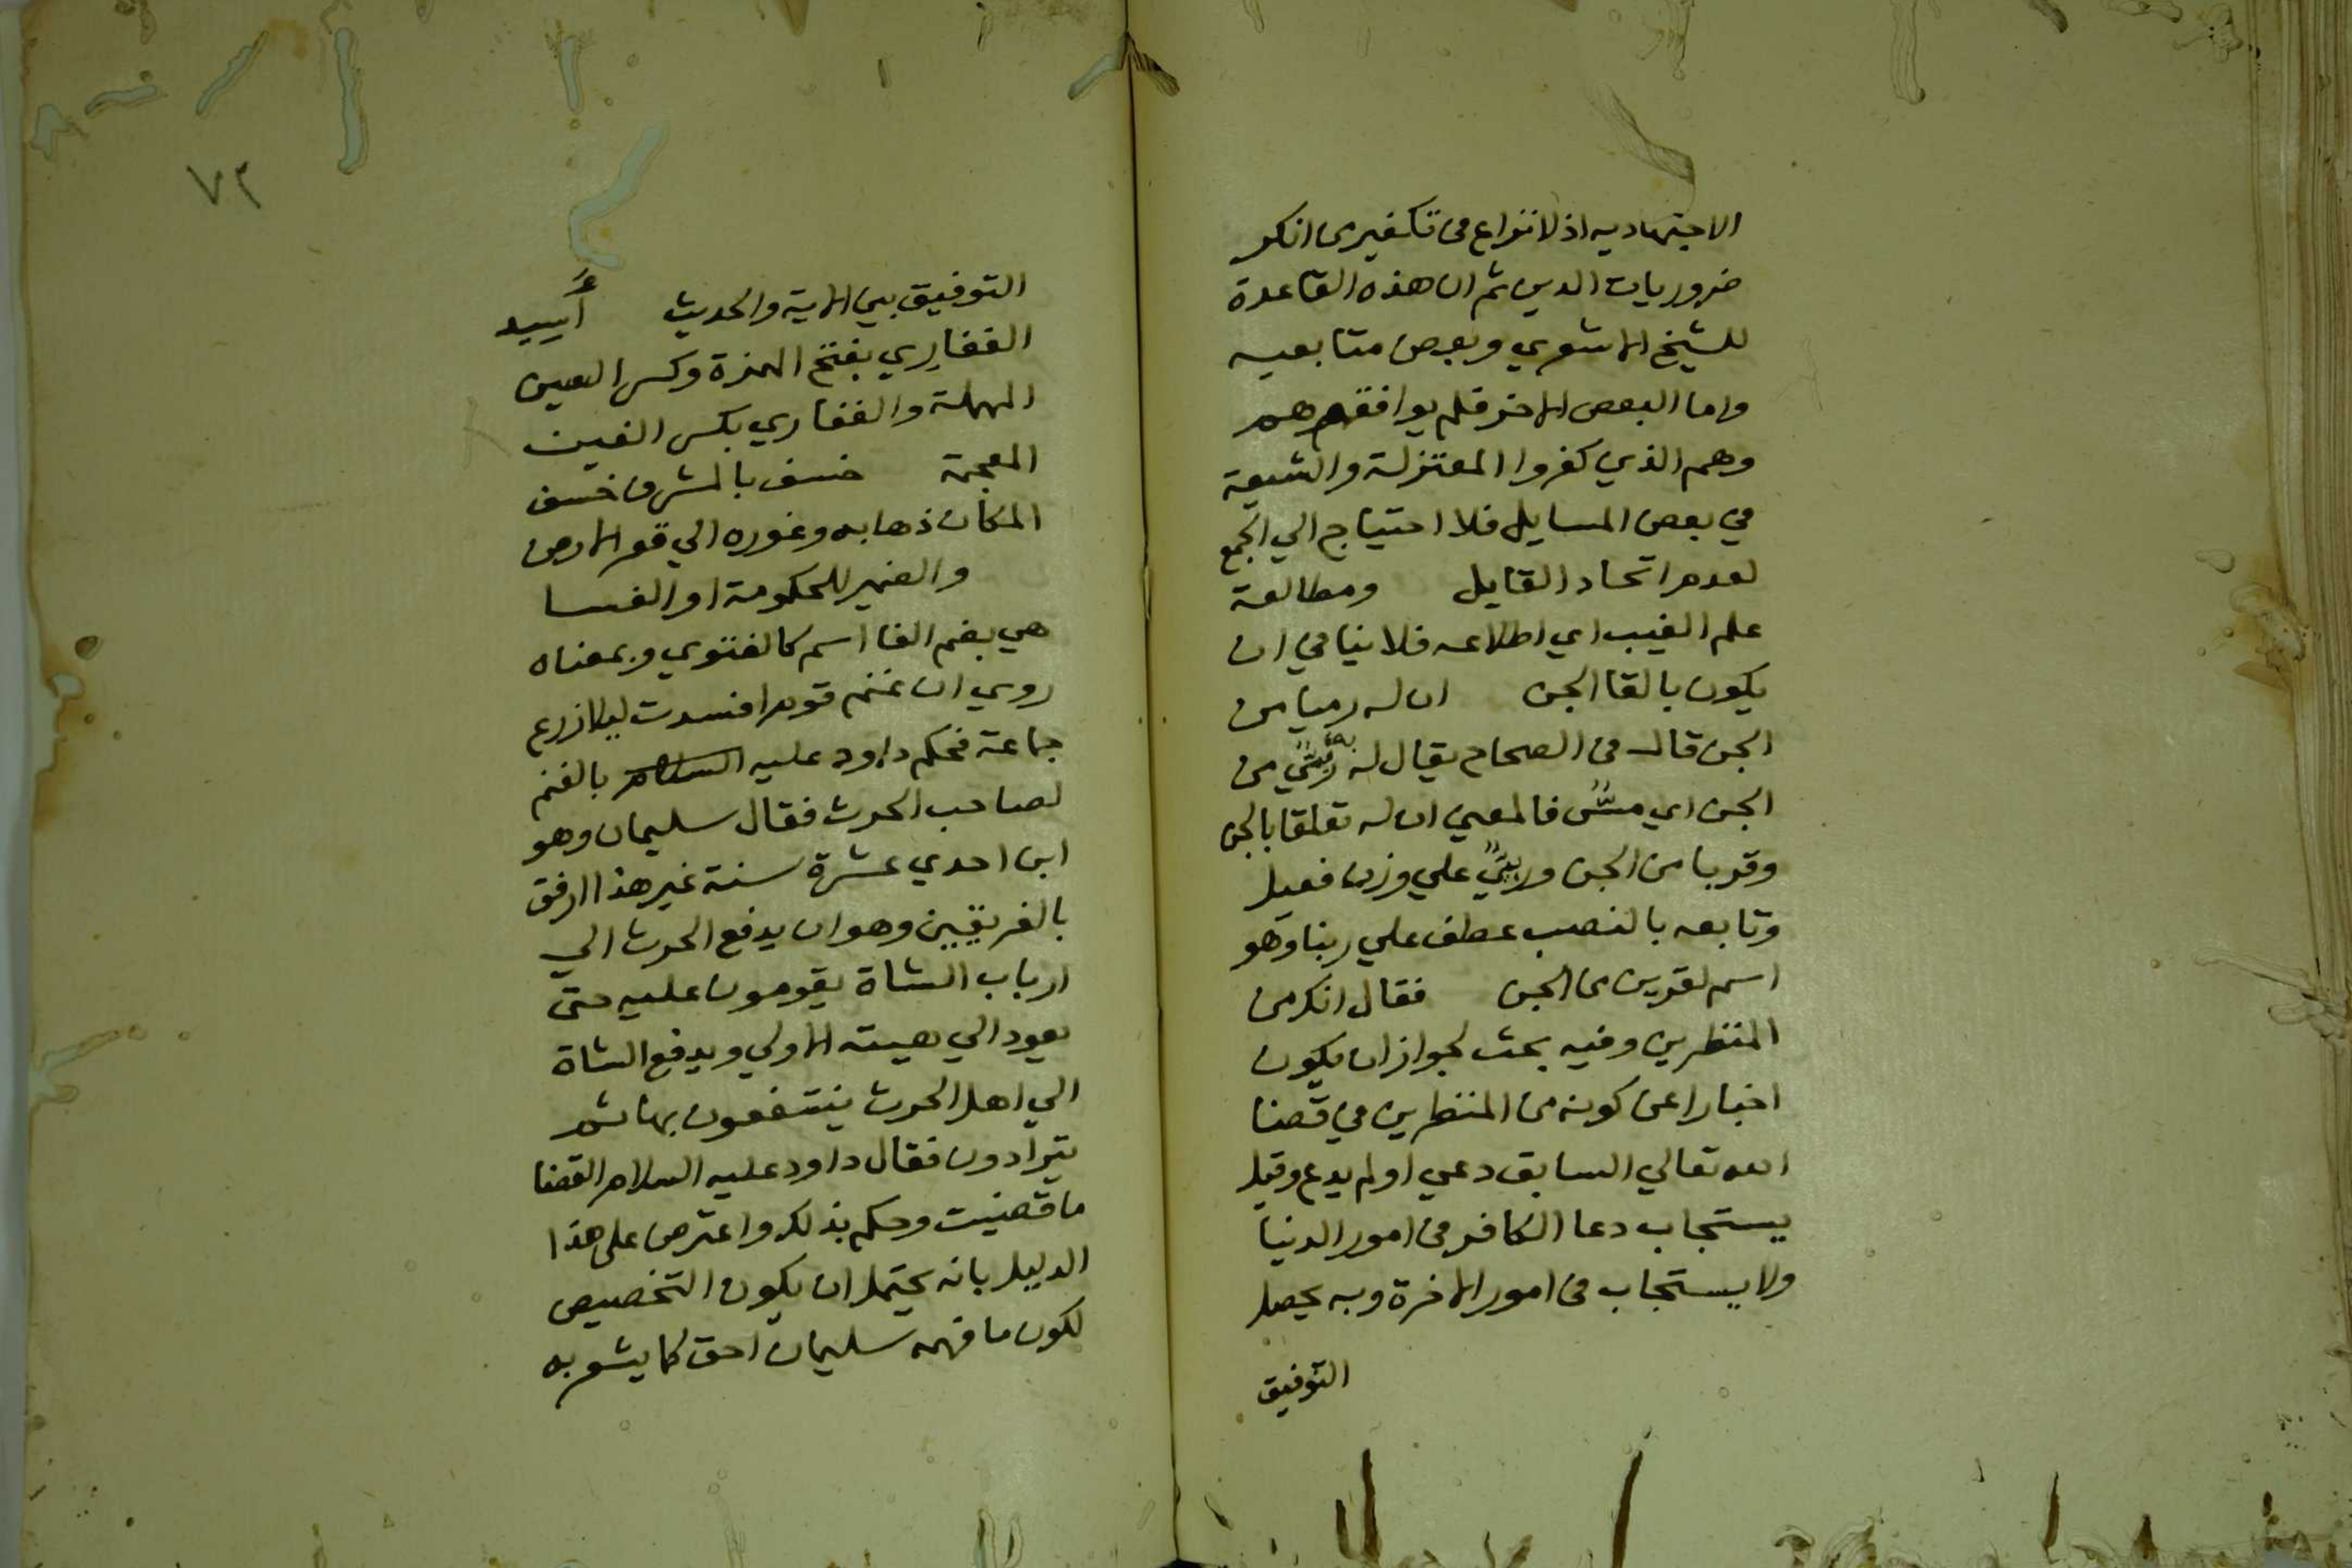 الاجتهاديه اذ لا نزاع في تكفير من انكر
ضروريات الدين ثم ان هذه القاعدة
للشيخ الاشعري وبعض متابعيه
واما البعض الاخر فلم يوافقهم
وهم الذي كفروا المعتزلة والشيعة
في بعض المسايل فلا احتياج الي الجمع
لعدم اتحاد القايل ومطالعة
علم الغيب اي اطلاعه فلا ينافي ان
يكون بالقا الجن ان له رميا من
الجن قال في الصحاح يقال له من
الجن اي مسٌّ فالمعني ان له تعلقا بالجن
وقربا من الجن علي وزن فعيل
وتابعه بالنصب عطف علي ربنا وهو
اسم لقرين من الجن فقال انك من
المنظرين وفيه بحث لجواز ان يكون
اخبارا عن كونه من المنظرين في قضا
الله تعالي السابق دعي او لم يدع وقيل
يستجاب دعا الكافر في امور الدنيا
ولا يستجاب في امور الاخرة وبه يحصل
التوفيق
٧٢
التوفيق بين الاية والحديث
الغفارِي بفتح الهمزة وكسر العين
المهملة والغفاري بكسر الغين
المعجمة خسف بالمشرق خسف
المكان ذهابه وغوره الي قعر الارض
والضمير للحكومة او الفسا
هي بضم الفا اسم كالفتوي وبمعناه
روي ان غنم قوم افسدت ليلا زرع
جماعة فحكم داود عليه السلام بالغنم
لصاحب الحرث فقال سليمان وهو
ابن احدي عشرة سنة غير هذا ارفق
بالفريقين وهو ان يدفع الحرث الي
ارباب الشاة يقومون عليه حتى
يعود الي هيئته الاولي ويدفع الشاة
الي اهل الحرث ينتفعون بها ثم
يترادون فقال داود عليه السلام القضا
ما قضيت وحكم بذلك واعترض على هذا
الدليل بانه يحتمل ان يكون التخصيص
لكون ما فهمه سليمان احق كما يشعر به